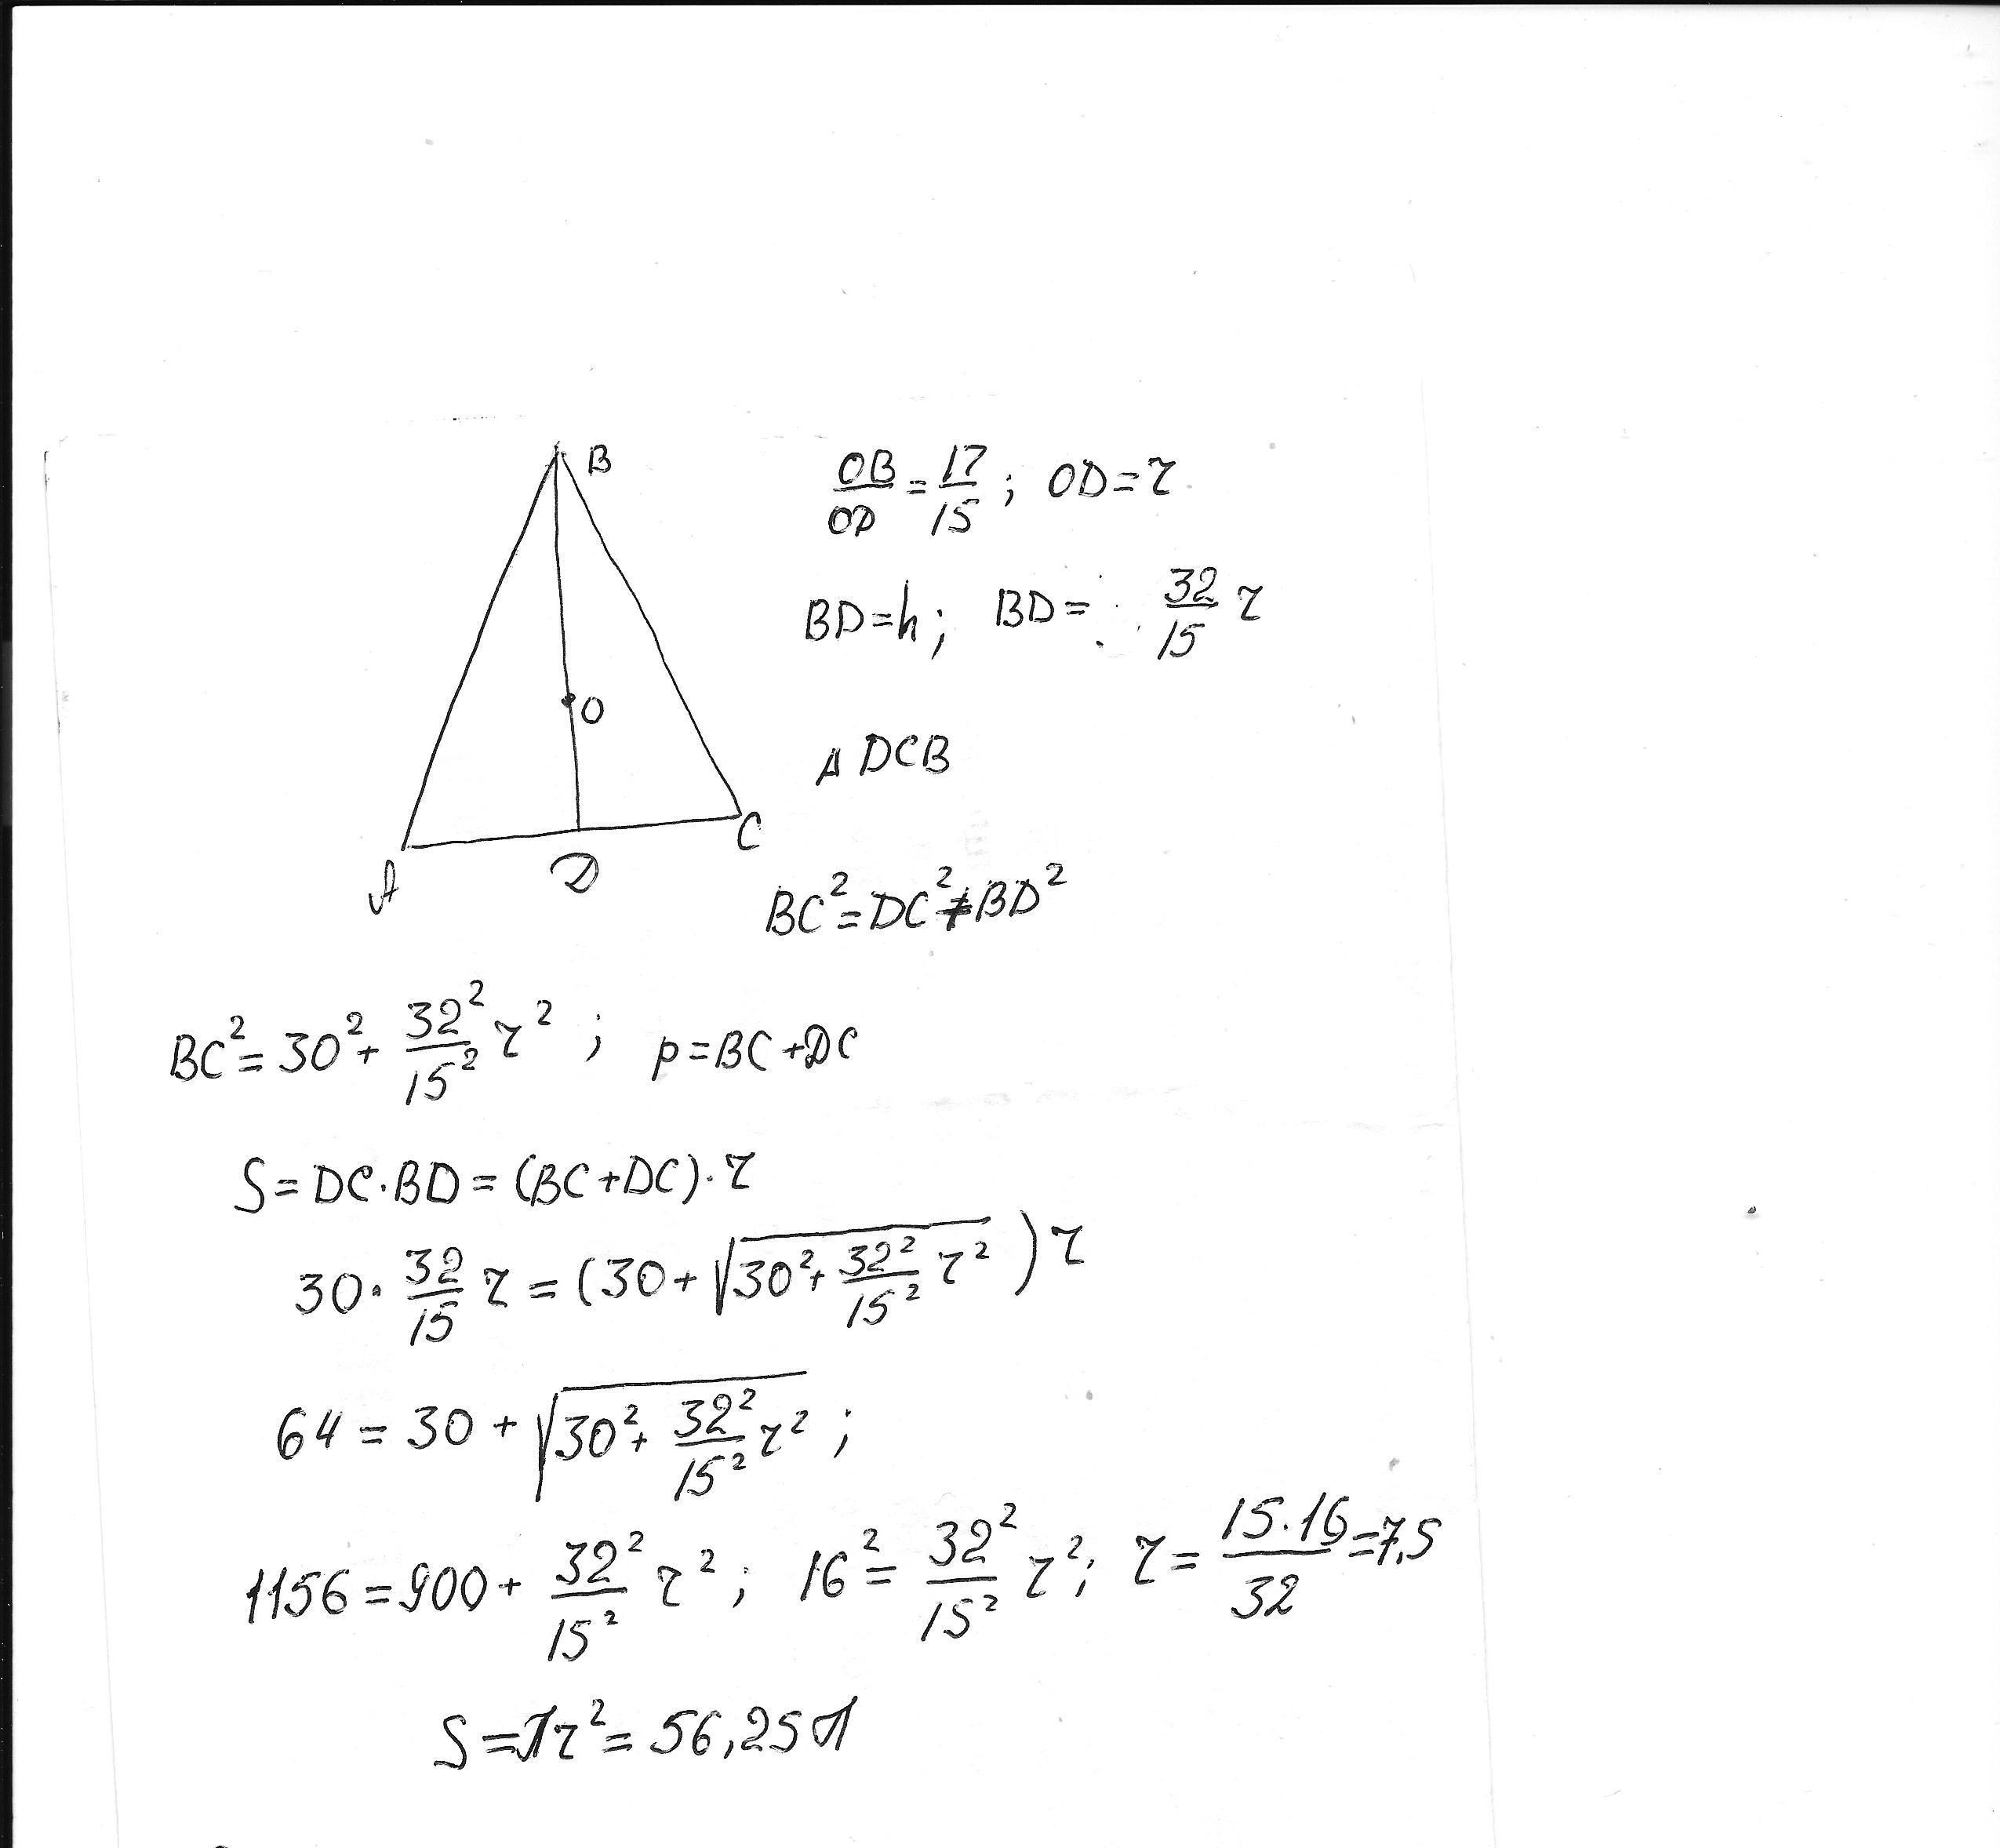 B
OB/OD = 17/15 ; OD = r
BD = h ; BD = 32/15 r
O
Δ DCB
A D C
BC² = DC² + BD²
BC² = 30² + 32²/15² r² ; p = BC + DC
S = DC · BD = (BC + DC) · r
30 · 32/15 r = (30 + √(30² + 32²/15² r²)) r
64 = 30 + √(30² + 32²/15² r²) ;
1156 = 900 + 32²/15² r² ; 16² = 32²/15² r² ; r = 15·16/32 = 7,5
S = πr² = 56,25π